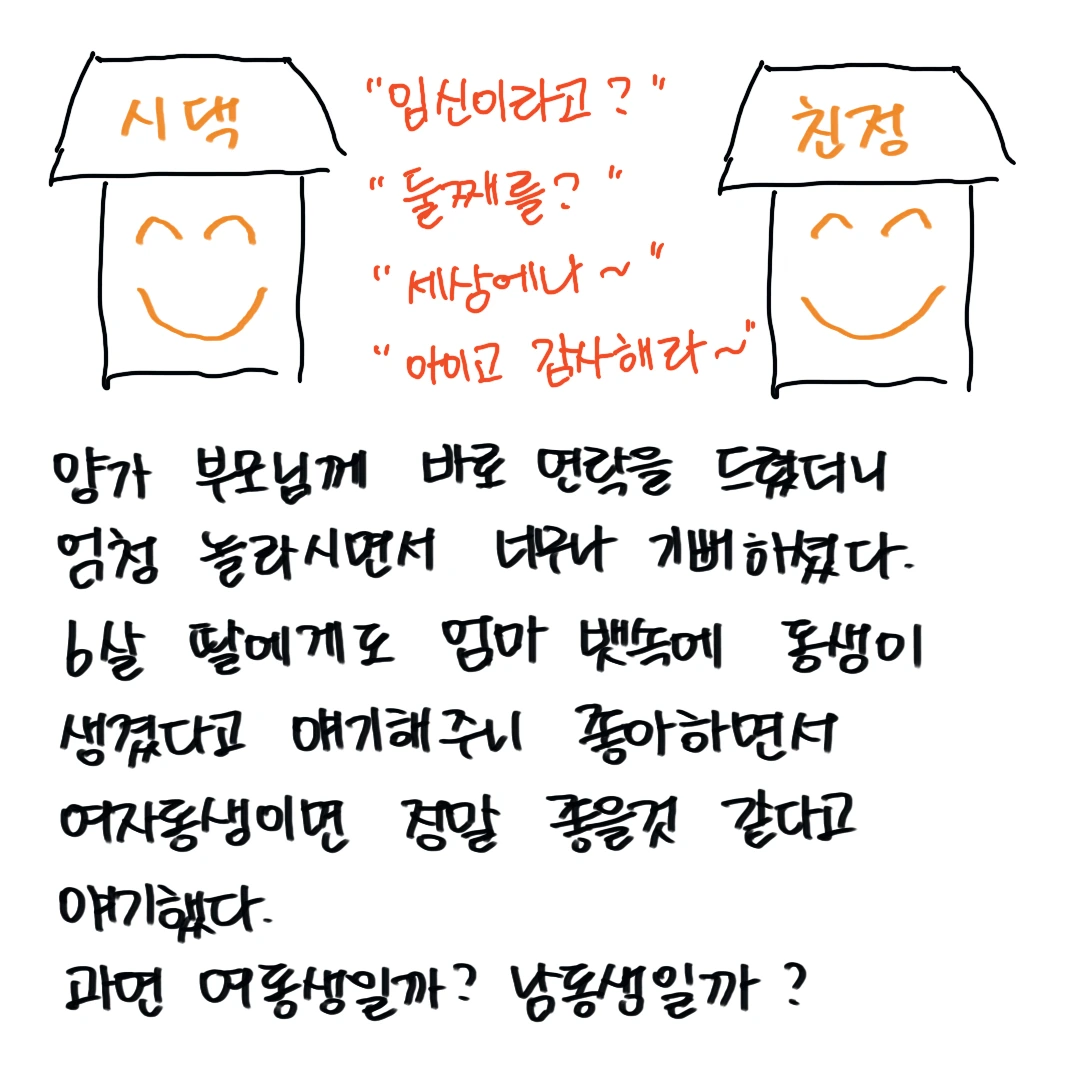 시댁
"임신이라고?"
친정
"둘째를?"
"세상에나~"
"아이고 감사해라~"
양가 부모님께 바로 연락을 드렸더니
엄청 놀라시면서 너무나 기뻐하셨다.
6살 딸에게도 엄마 뱃속에 동생이
생겼다고 얘기해주니 좋아하면서
여자동생이면 정말 좋을것 같다고
얘기했다.
과연 여동생일까? 남동생일까?